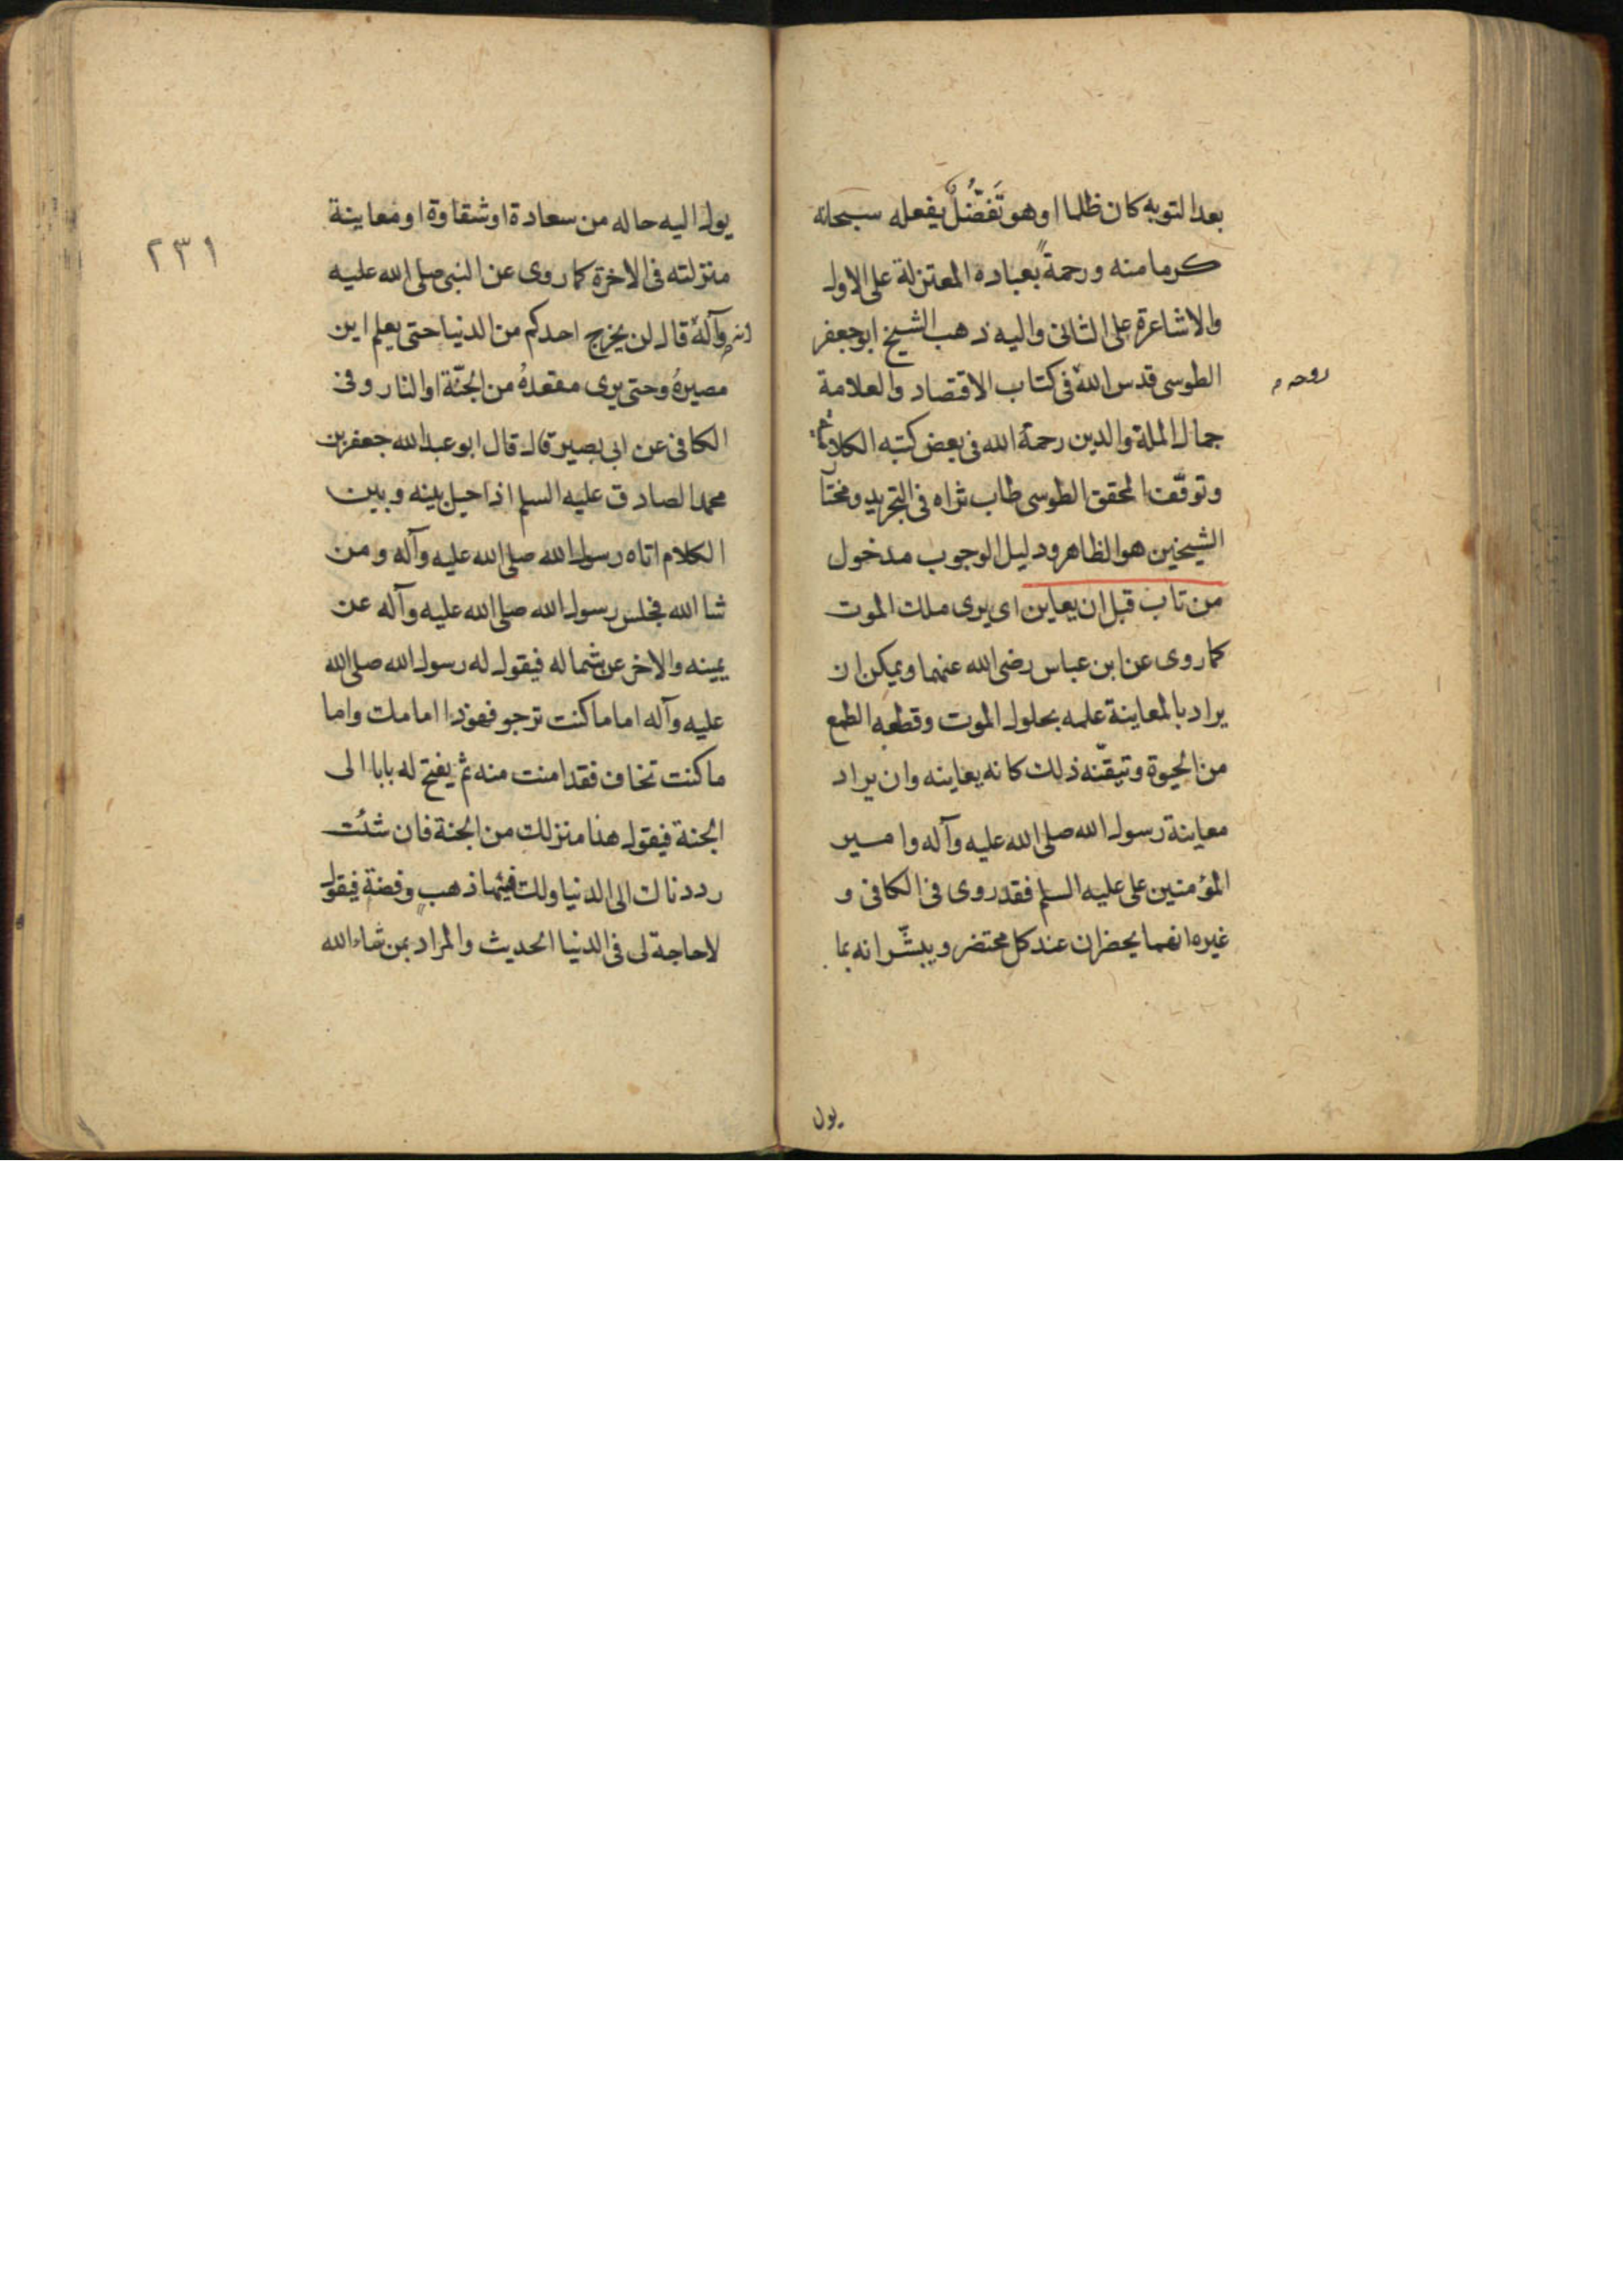 بعد التوبه كان ظلما او هو تَفَضُّلٌ يفعله سبحانه
كرما منه ورحمةً بعباده المعتزلة على الاول
والاشاعرة على الثانى واليه ذهب الشيخ ابوجعفر
الطوسى قدس الله فى كتاب الاقتصاد والعلامة
روحه
جمال الملة والدين رحمة الله فى بعض كتبه الكلامية
وتوقّف المحقق الطوسى طاب ثراه فى التجريد ومختا
الشيخين هو الظاهر ودليل الوجوب مدخول
من تاب قبل ان يعاين اى يرى ملك الموت
كما روى عن ابن عباس رضى الله عنهما ويمكن ان
يراد بالمعاينة علمه بحلول الموت وقطعه الطمع
من الحيوة وتيقّنه ذلك كانه يعاينه وان يراد
معاينة رسول الله صلى الله عليه وآله وامير
المؤمنين على عليه السلم فقد روى فى الكافى و
غيره انهما يحضران عند كل محتضر ويبشّرانه بما
يول
٢٣١
يول اليه حاله من سعادة او شقاوة او معاينة
منزلته فى الاخرة كما روى عن النبى صلى الله عليه
وآله قال لن يخرج احدكم من الدنيا حتى يعلم اين
مصيرهُ وحتى يرى مقعدهُ من الجنّة او النار وفى
الكافى عن ابى بصير قال قال ابو عبد الله جعفر بن
محمد الصادق عليه السلم اذا حيل بينه وبين
الكلام اتاه رسول الله صلى الله عليه وآله ومن
شا الله فجلس رسول الله صلى الله عليه وآله عن
يمينه والاخر عن شماله فيقول له رسول الله صلى الله
عليه وآله اما ما كنت ترجو فهوذا امامك واما
ما كنت تخاف فقد امنت منه ثم يفتح له بابا الى
الجنة فيقول هذا منزلك من الجنة فان شئت
رددناك الى الدنيا ولك فيها ذهب وفضة فيقول
لا حاجة لى فى الدنيا الحديث والمراد بمن شاء الله